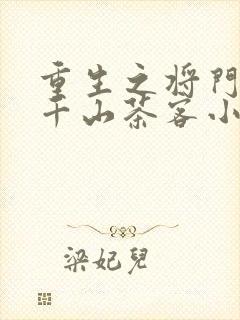 重生之将門
千山茶客小
梁妃兒